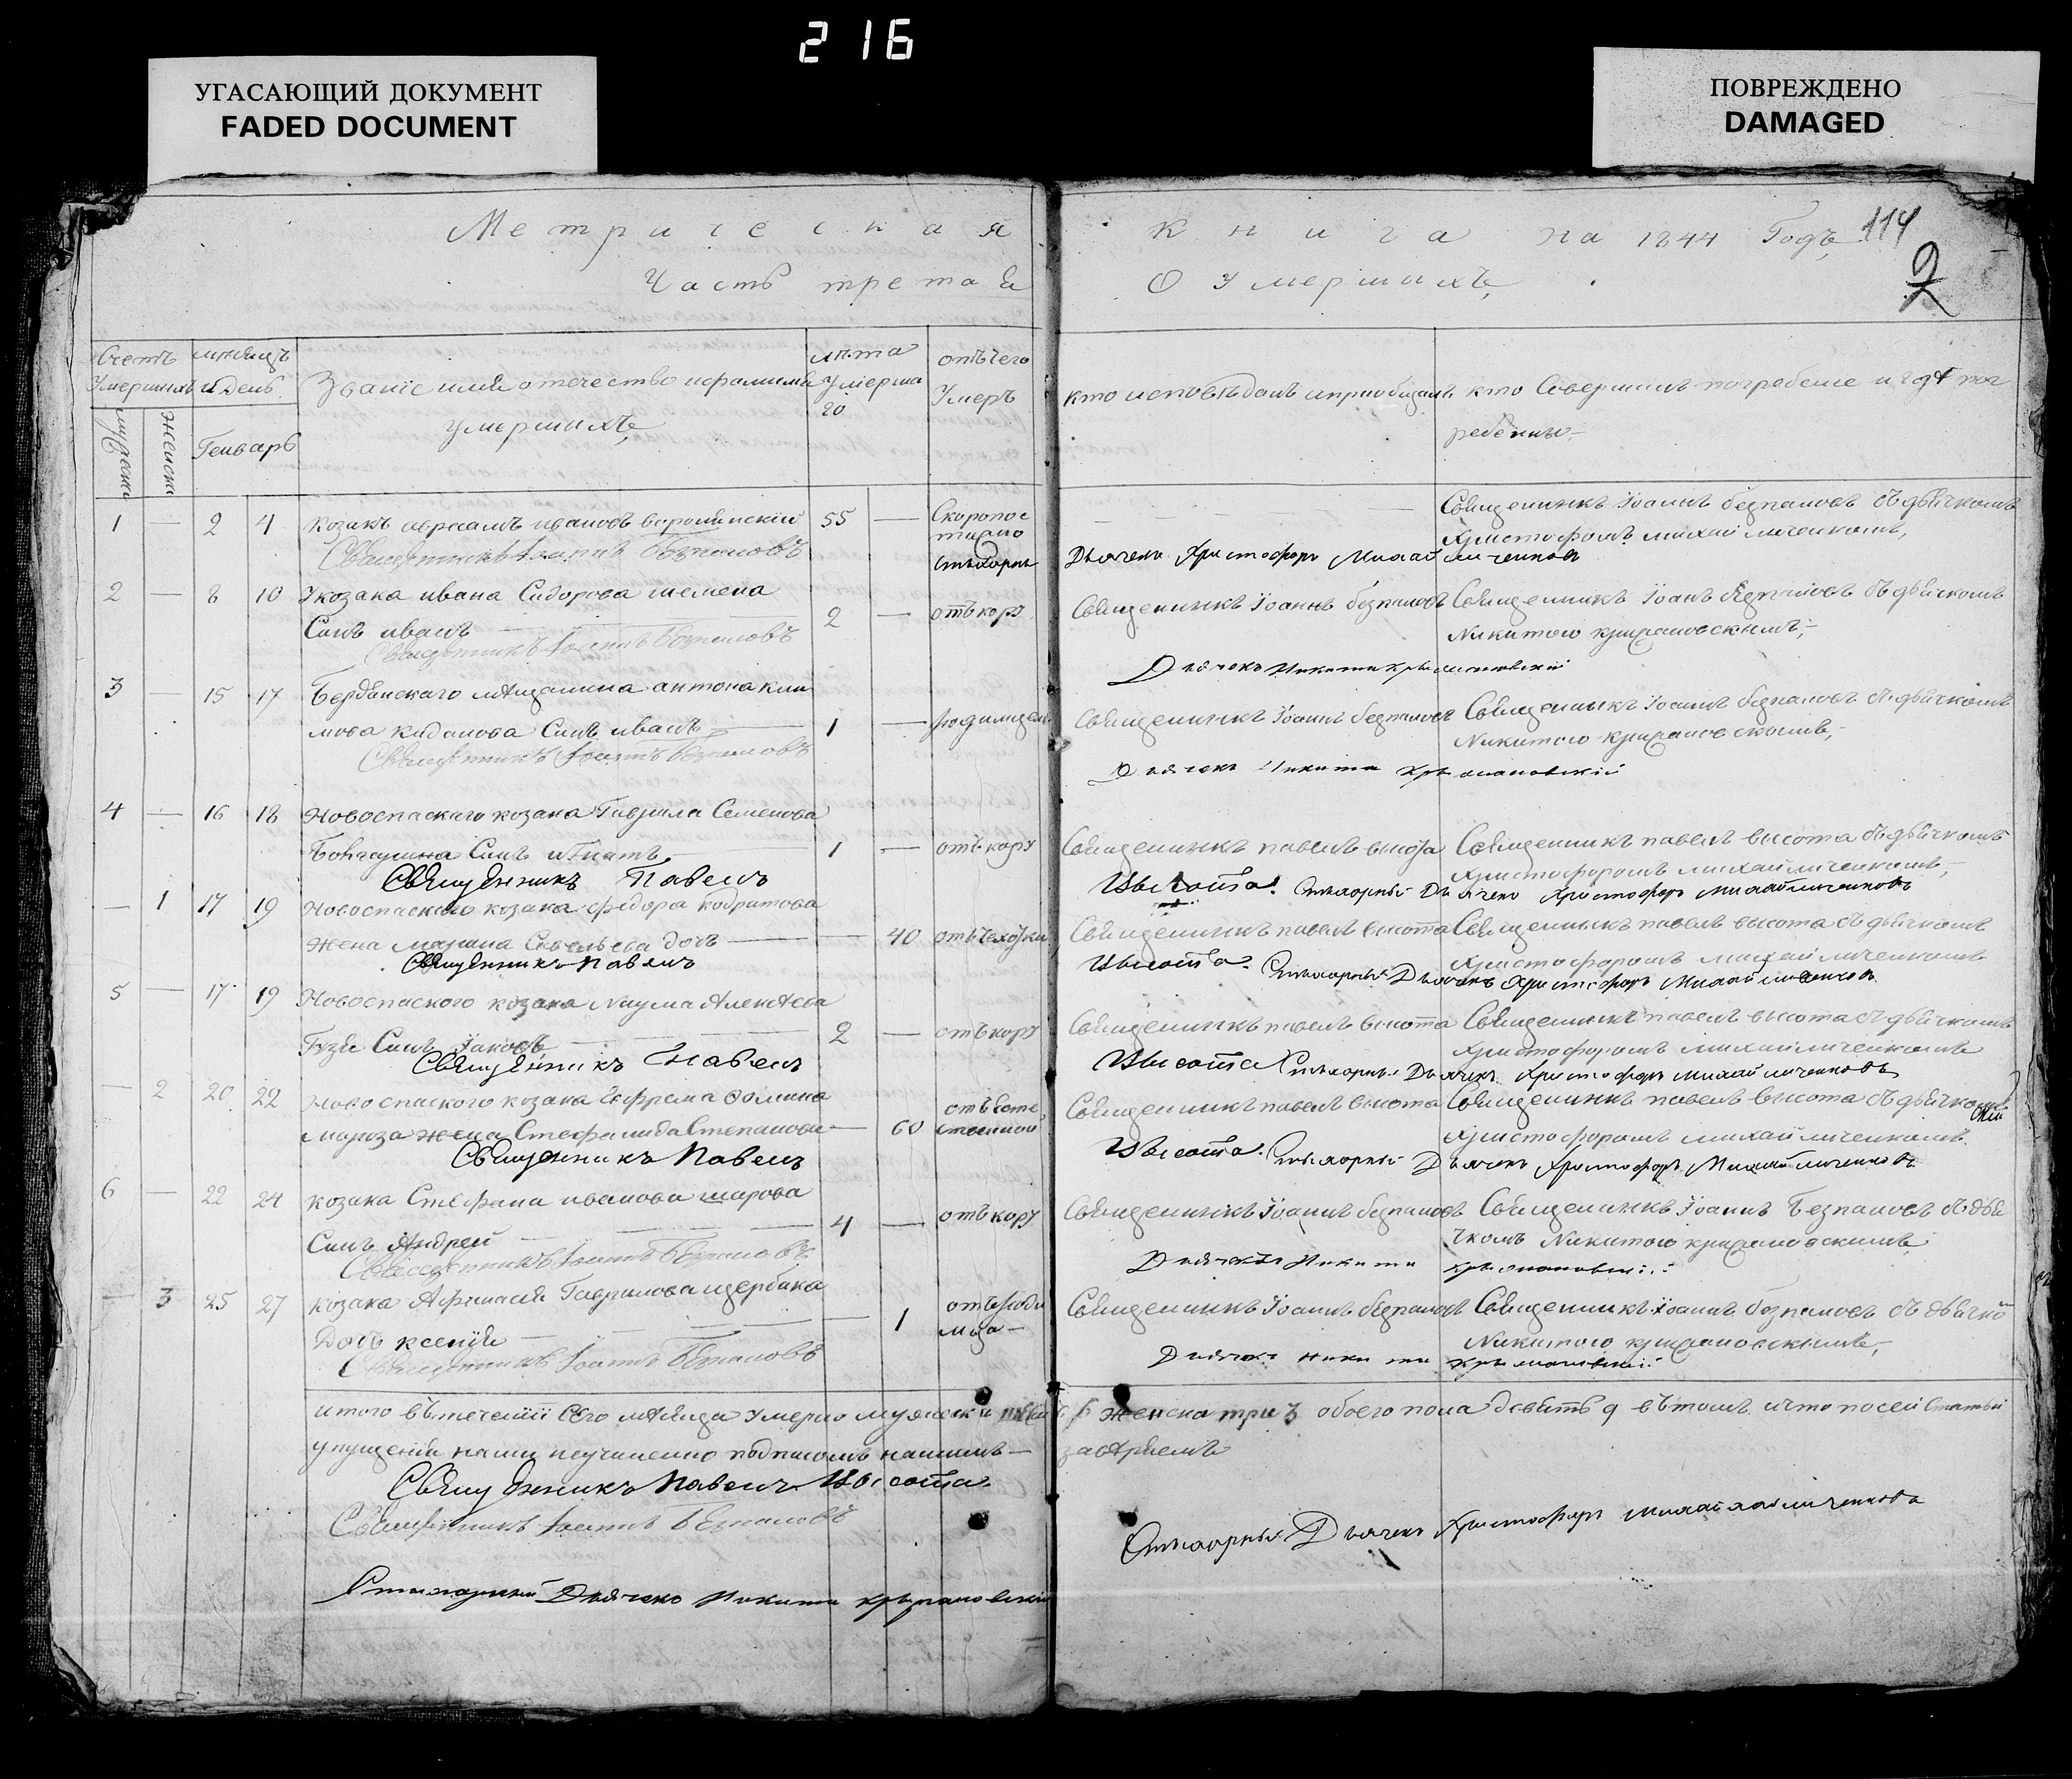 216
УГАСАЮЩИЙ ДОКУМЕНТ
FADED DOCUMENT
ПОВРЕЖДЕНО
DAMAGED
Метрическая книга на 1844 Годъ 114
Часть третая О Умершихъ, 2
Счетъ Умершихъ
мужеска
женска
мѣсяцъ и день
Генварь
Званіе имя отечество ифамилия
умершихъ
лѣта Умерша
го
отъчего
Умеръ
кто исповѣдалъ иприобщалъ
кто Совершилъ погребеніе и гдѣ пог
ребенны
1 — 2 4 козакъ авраамъ ивановъ 55 — Скоропос
тижно
Священникъ Іоаннъ Безпаловъ
Священникъ Іоаннъ безпаловъ съ дьячкомъ
Христофоромъ михайличенкомъ,
Стихарны Дьячекъ Христофоръ Михайличенковъ
2 — 8 10 Укозака ивана Сидорова шемена
Сынъ иванъ 2 — отъ кору
Священникъ Іоаннъ Безпаловъ
Священникъ Іоаннъ безпаловъ Священникъ Іоанъ безпаловъ съ дьячкомъ
Никитою
Дьячекъ Никита
3 — 15 17 Бердянскаго мѣщанина антона кли
мова Сынъ иванъ 1 —
Священникъ Іоаннъ Безпаловъ
Священникъ Іоаннъ безпаловъ Священникъ Іоаннъ безпаловъ съ дьячкомъ
Никитою
Дьячекъ Никита
4 — 16 18 Новоспаскаго козака Гаврила Семенова
Сынъ игнатъ 1 — отъ кору
Священникъ Павелъ Высота.
Священникъ павелъ высота Священникъ павелъ высота съ дьячкомъ
Христофоромъ михайличенкомъ,
Стихарный Дьячекъ Христофоръ Михайличенковъ
— 1 17 19 Новоспаскаго козака федора кодратова
жена Савельева дочь — 40
Священникъ Павелъ Высота.
Священникъ павелъ высота Священникъ павелъ высота съ дьячкомъ
Христофоромъ михайличенкомъ
Стихарный Дьячекъ Христофоръ Михайличенковъ
5 — 17 19 Новоспаского козака Наума Алексѣева
Гузя Сынъ Іаковъ 2 — отъ кору
Священникъ Павелъ Высота
Священникъ павелъ высота Священникъ павелъ высота съ дьячкомъ
Христофоромъ михайличенкомъ
Стихарный Дьячекъ Христофоръ Михайличенковъ
— 2 20 22 Новоспаского козака Ефрема Фомина
мороза жена Стефанида Степанова — 60 отъ есте
ственной
Священникъ Павелъ Высота.
Священникъ павелъ высота Священникъ павелъ высота съ дьячкомъ
Христофоромъ михайличенкомъ.
Стихарный Дьячекъ Христофоръ Михайличенковъ
6 — 22 24 козака Стефана иванова шарова
Сынъ Андрей 4 — отъ кору
Священникъ Іоаннъ Безпаловъ
Священникъ Іоаннъ безпаловъ Священникъ Іоаннъ Безпаловъ съ дья
чкомъ Никитою
Дьячекъ Никита
— 3 25 27 козака Афанасія Гаврилова щербака
Дочь ксенія — 1 отъ роди
мца —
Священникъ Іоаннъ Безпаловъ
Священникъ Іоаннъ безпаловъ Священникъ Іоаннъ безпаловъ съ дьячко
Никитою
Дьячекъ Никита
итого въ теченіи сего мѣсяца умерло мужеска 6 женска три 3 обоего пола девять 9 вътомъ ичто посей статьи
упущенія нами неучиненно подписомъ нашимъ — завѣряемъ
Священникъ Павелъ Высота.
Священникъ Іоаннъ Безпаловъ
Стихарный Дьячекъ Христофоръ
Стихарный Дьячекъ Никита